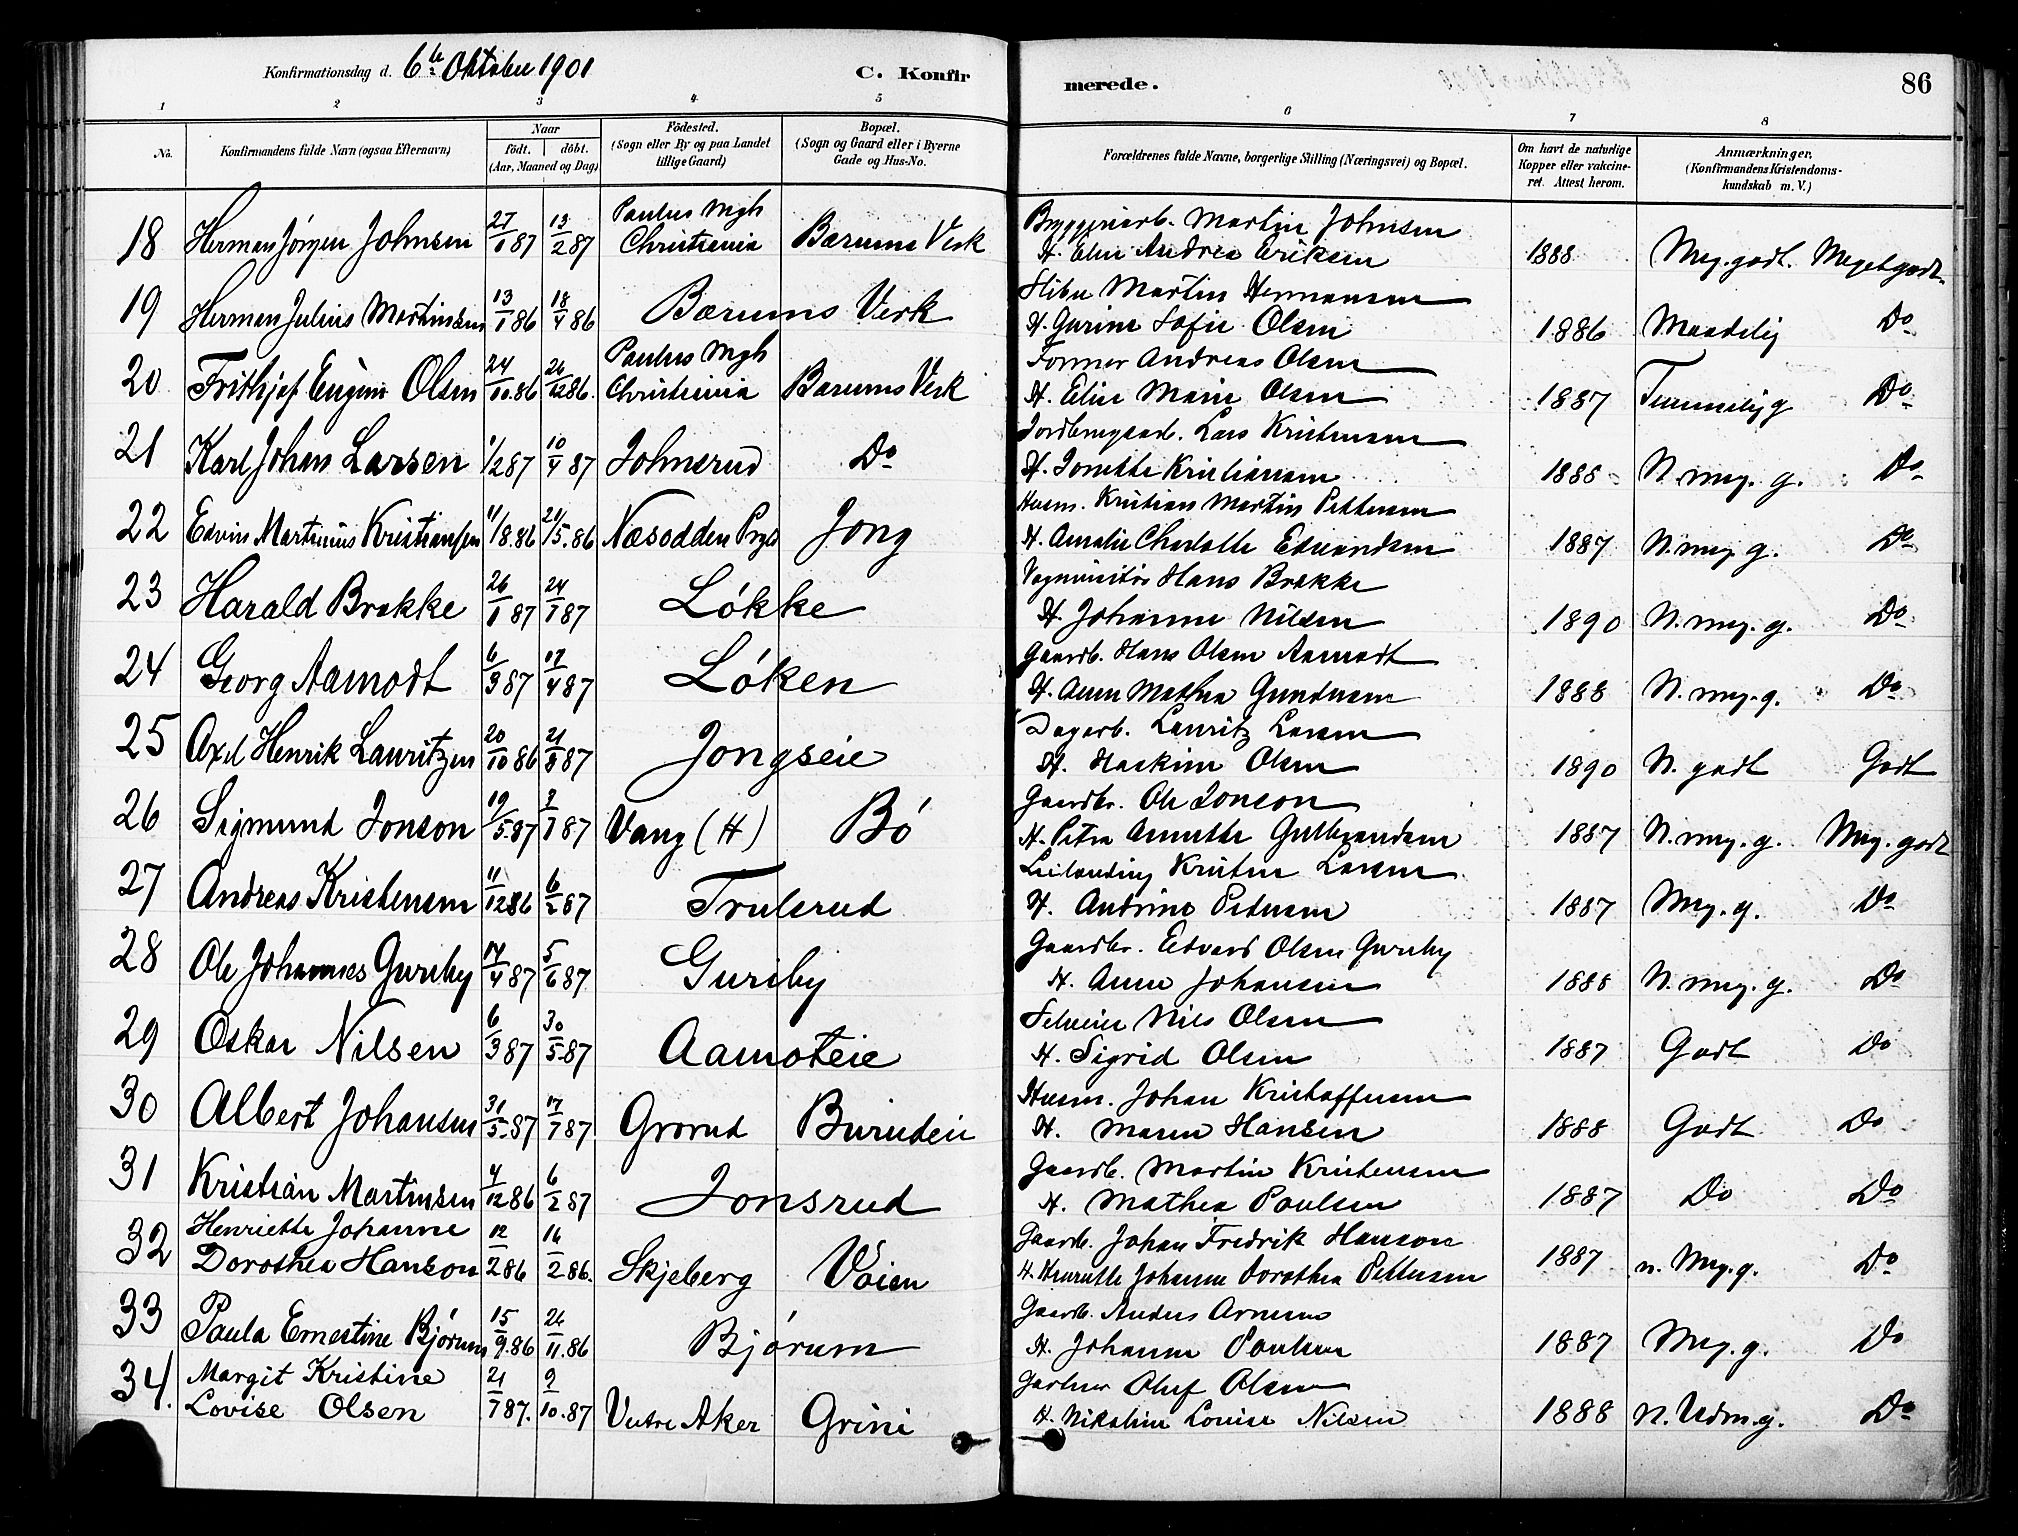 Konfirmationsdag d. 6te Oktober 1901
C. Konfirmerede.
86
1 2 3 4 5 6 7 8
No.
Konfirmandens fulde Navn (ogsaa Efternavn)
Naar
födt. | döbt.
(Aar, Maaned og Dag)
Födested.
(Sogn eller By og paa Landet
tillige Gaard)
Bopæl.
(Sogn og Gaard eller i Byerne
Gade og Hus-No.
Forældrenes fulde Navne, borgerlige Stilling (Næringsvei) og Bopæl.
Om havt de naturlige
Kopper eller vakcine-
ret. Attest herom.
Anmærkninger.
(Konfirmandens Kristendoms-
kundskab m. V.)
Paulus Mgh Byggeriarb. Martin Johnsen
18 Herman Jörgen Johnsen 27/1 87 13/2 87 Christiania Bærums Verk H. Elen Andrea Eriksen 1888 Meg. godt. Meget godt.
Martin Hermansen
19 Herman Julius Martinsen 13/1 86 18/4 86 Bærums Verk H. Gurine Sofie Olsen 1886 Maadelig Do
Paulus Mgh Former Andreas Olsen
20 Frithjof Eugen Olsen 24/10 86 26/12 86. Christiania Bærums Verk H. Elise Marie Olsen 1887 Temmelig g Do
Jordbrugsarb. Lars Kristensen
21 Karl Johan Larsen 1/2 87 10/4 87 Johnsrud Do H. Jonette Kristiansen 1888 N. meg. g. Do
Husm. Kristian Martin Pettersen
22 Edvin Martinius Kristiansen 11/8.86 21/5.86 Næsodden Prgld Jong H. Amalie Charlotte Edvardsen 1887 N. meg g. Do
Vognvisitör Hans Brække
23 Harald Brække 26/1 87 24/7 87 Løkke H. Johanne Nilsen 1890 N. meg. g. Do
Gaardb. Hans Olsen Aamodt
24 Georg Aamodt 6/3 87 17/4 87 Løken H. Anne Mathea Gundersen 1888 N. meg. g. Do
Dagarb. Lauritz Larsen
25 Axel Henrik Lauritzen 20/10 86 21/8 87 Jongseie H. Haskine Olsen 1890 N. godt Godt
Gaardbr. Ole Jonson
26 Sigmund Jonson 19/5.87 3/7 87 Vang (H) Bö H. Petra Annette Gulbrandsen 1887 N. meg. g. Meg. godt
Leilending Kristen Larsen
27 Andreas Kristensen 11/12 86 6/2 87 Trulsrud H. Andrine Pedersen 1887 Meg. g. Do
Gaardbr. Edvard Olsen Gurihy
28 Ole Johannes Guriby 14/4 87 5/6 87. Guriby H. Anne Johansen 1888 N. meg. g. Do
Selveier Nils Olsen
29 Oskar Nilsen 6/3 87 30/5.87 Aamoteie H. Sigrid Olsen 1887 Godt Do
Husm. Johan Kristoffersen
30 Albert Johansen 31/5.87 17/7 87 Grorud Burudeie H. Maren Hansen 1888 Godt Do
Gaardb. Martin Kristensen
31 Kristian Martinsen 4/12 86 6/2 87 Jonsrud H. Mathea Paulsen 1887 Do Do
Henriette Johanne Gaardb. Johan Fredrik Hanson
32 Dorothea Hanson 12/2 86 16/2 86. Skjeberg Vöien H. Henriette Johanne Dorothea Pettersen 1887 n. Meg. g. Do
Gaardb. Anders Arnesen
33 Paula Ernestine Bjørum 15/9.86 26/11.86 Bjørum H. Johanne Paulsen 1887 Meg. g. Do
Margit Kristine Gartner Oluf Olsen
34. Lovise Olsen 21/7 87. 9/10.87 Vestre Aker Grini H. Nikoline Louise Nilsen 1888 n. Udm. g. Do